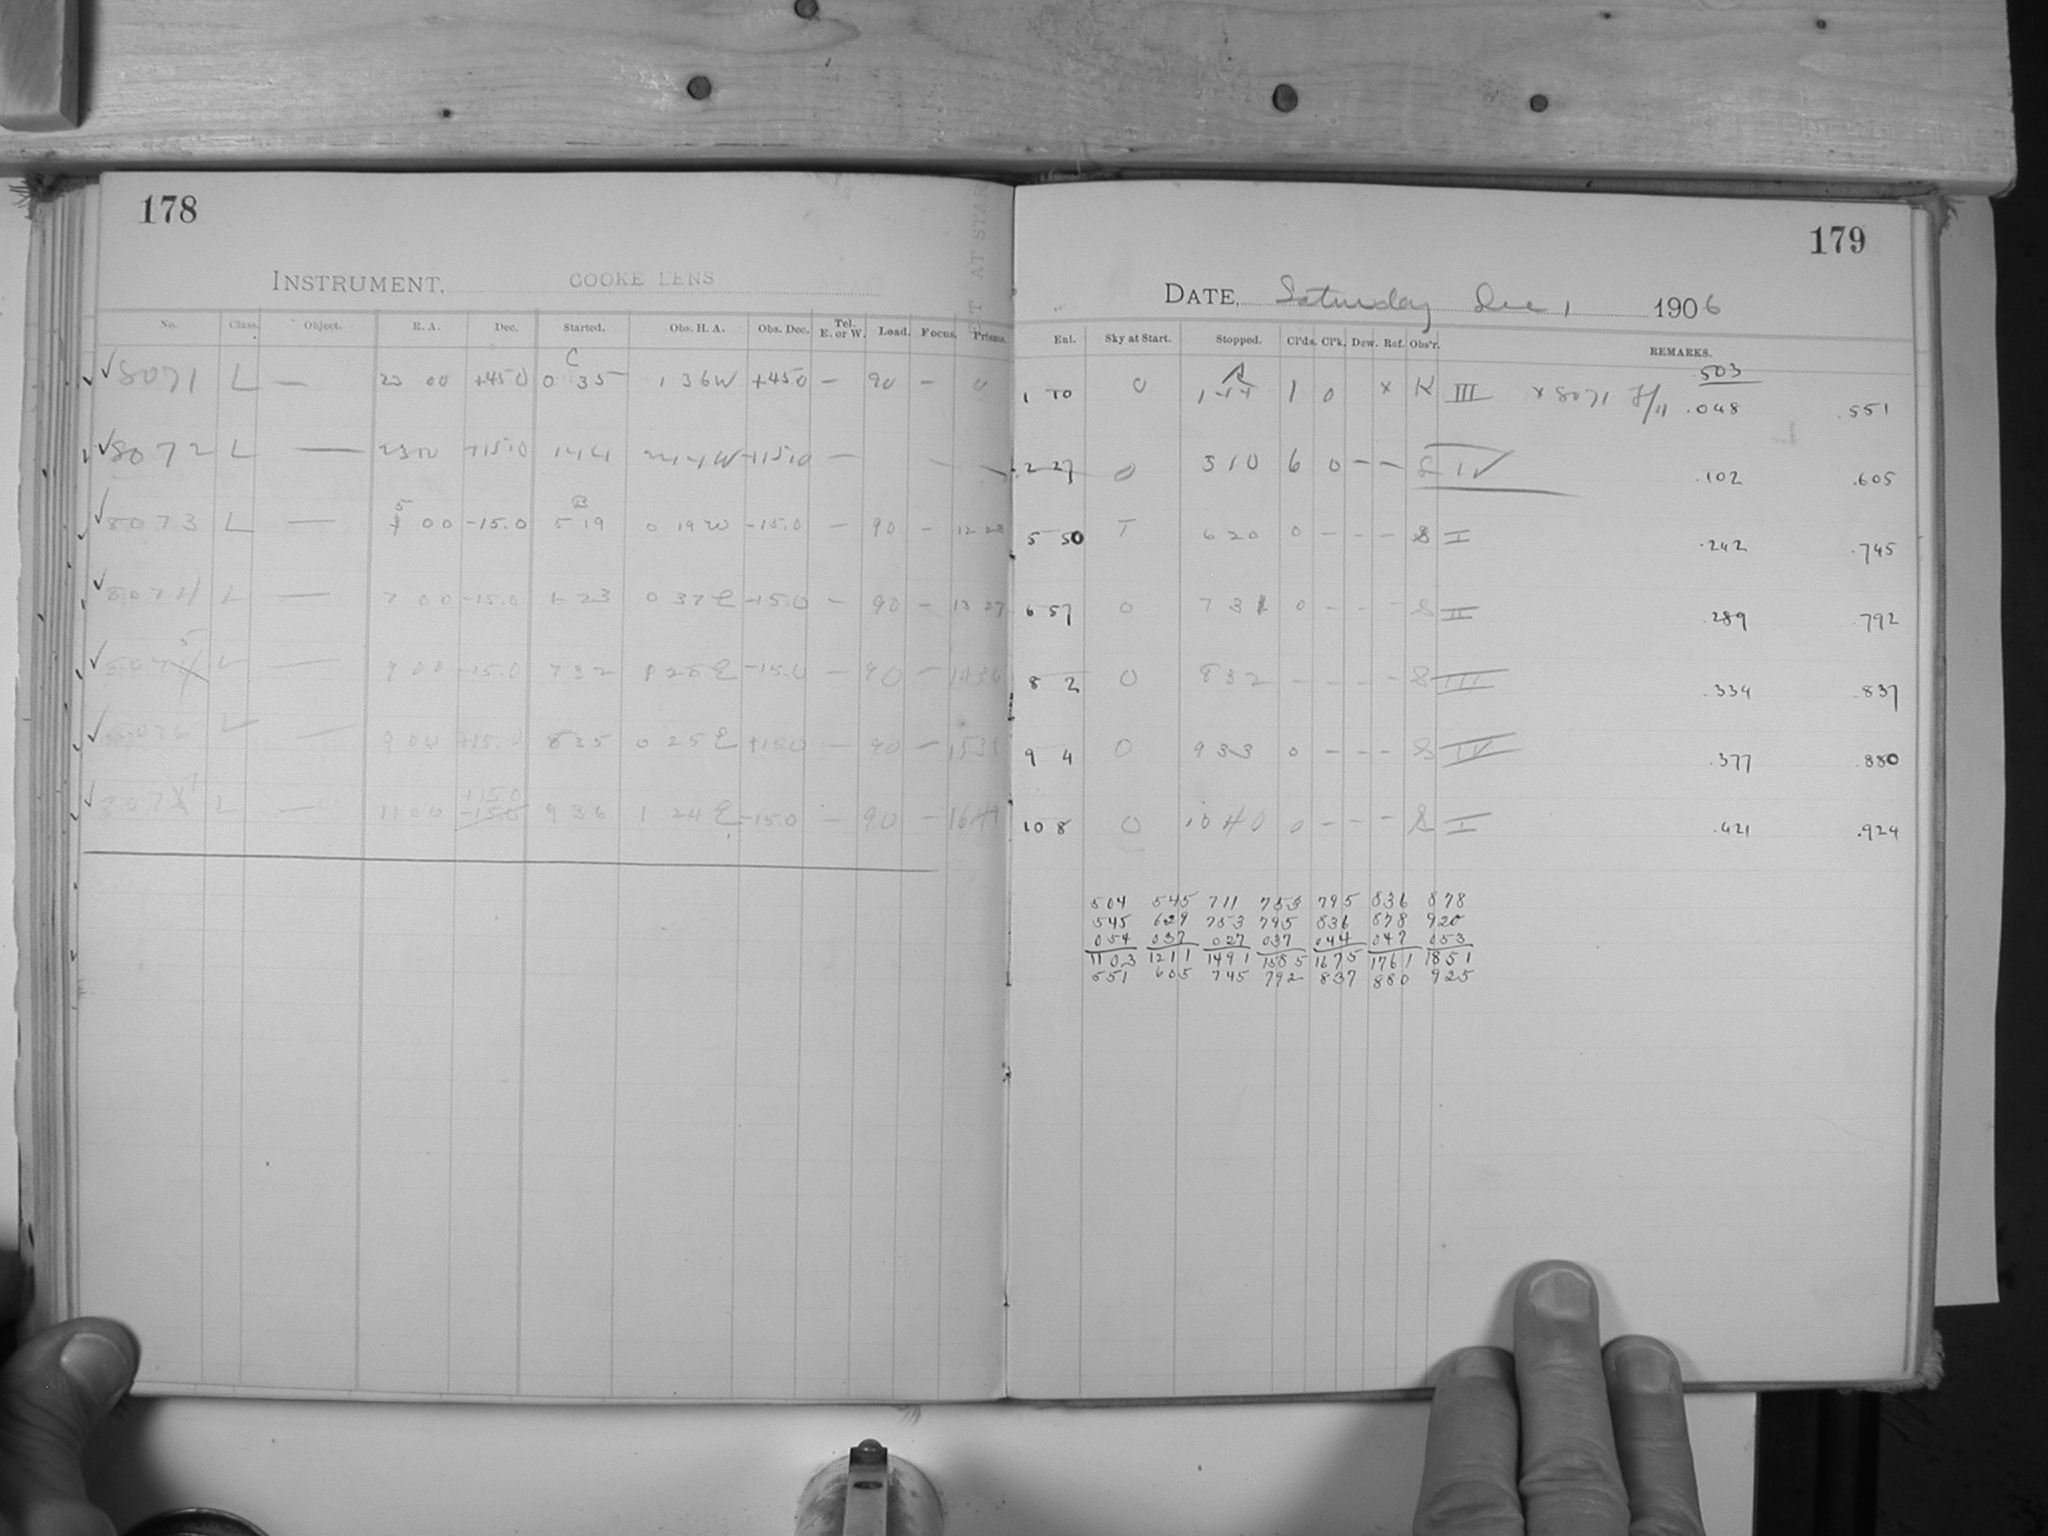 178
INSTRUMENT. COOKE LENS
No. Class. Object. R. A. Dec. Started. Obs. H. A. Obs. Dec. Tel. E. or W. Load. Focus. Prisms.
C
8071 L — 23 00 +45.0 0 35 1 36W +45.0 — 90 — 0
8072 L — +15.0 1 44 2 44W +15.0 — — —
5 B
8073 L — 00 -15.0 5 19 0 19W -15.0 — 90 — 12 28
8074 L — 7 00 -15.0 6 23 0 37E -15.0 — 90 — 13 27
5
807 L — 9 00 -15.0 7 32 1 25E -15.0 — 90 — 1436
8076 L — 9 00 +15.0 8 35 0 25E +15.0 — 90 —
7 +15.0
807 L — 11 00 -15.0 9 36 1 24E -15.0 — 90 —
179
DATE, Saturday Dec 1 1906
Exl. Sky at Start. Stopped. Cl'ds. Cl'k. Dew. Ref. Obs'r. REMARKS.
.503
1 10 0 1 44 1 0 x K III x 8071 .048 .551
2 27 0 3 10 6 0 — — S IV .102 .605
5 50 T 6 20 0 — — — S I .242 .745
6 57 0 7 31 0 — — — S II .289 .792
8 2 0 8 32 — — — — S III .334 .837
9 4 0 9 33 0 — — — S IV .377 .880
10 8 0 10 40 0 — — — S I .421 .924
504 545 711 753 795 836 878
545 629 753 795 836 878 920
054 037 027 037 044 047 053
1103 1211 1491 1585 1675 1761 1851
551 605 745 792 837 880 925